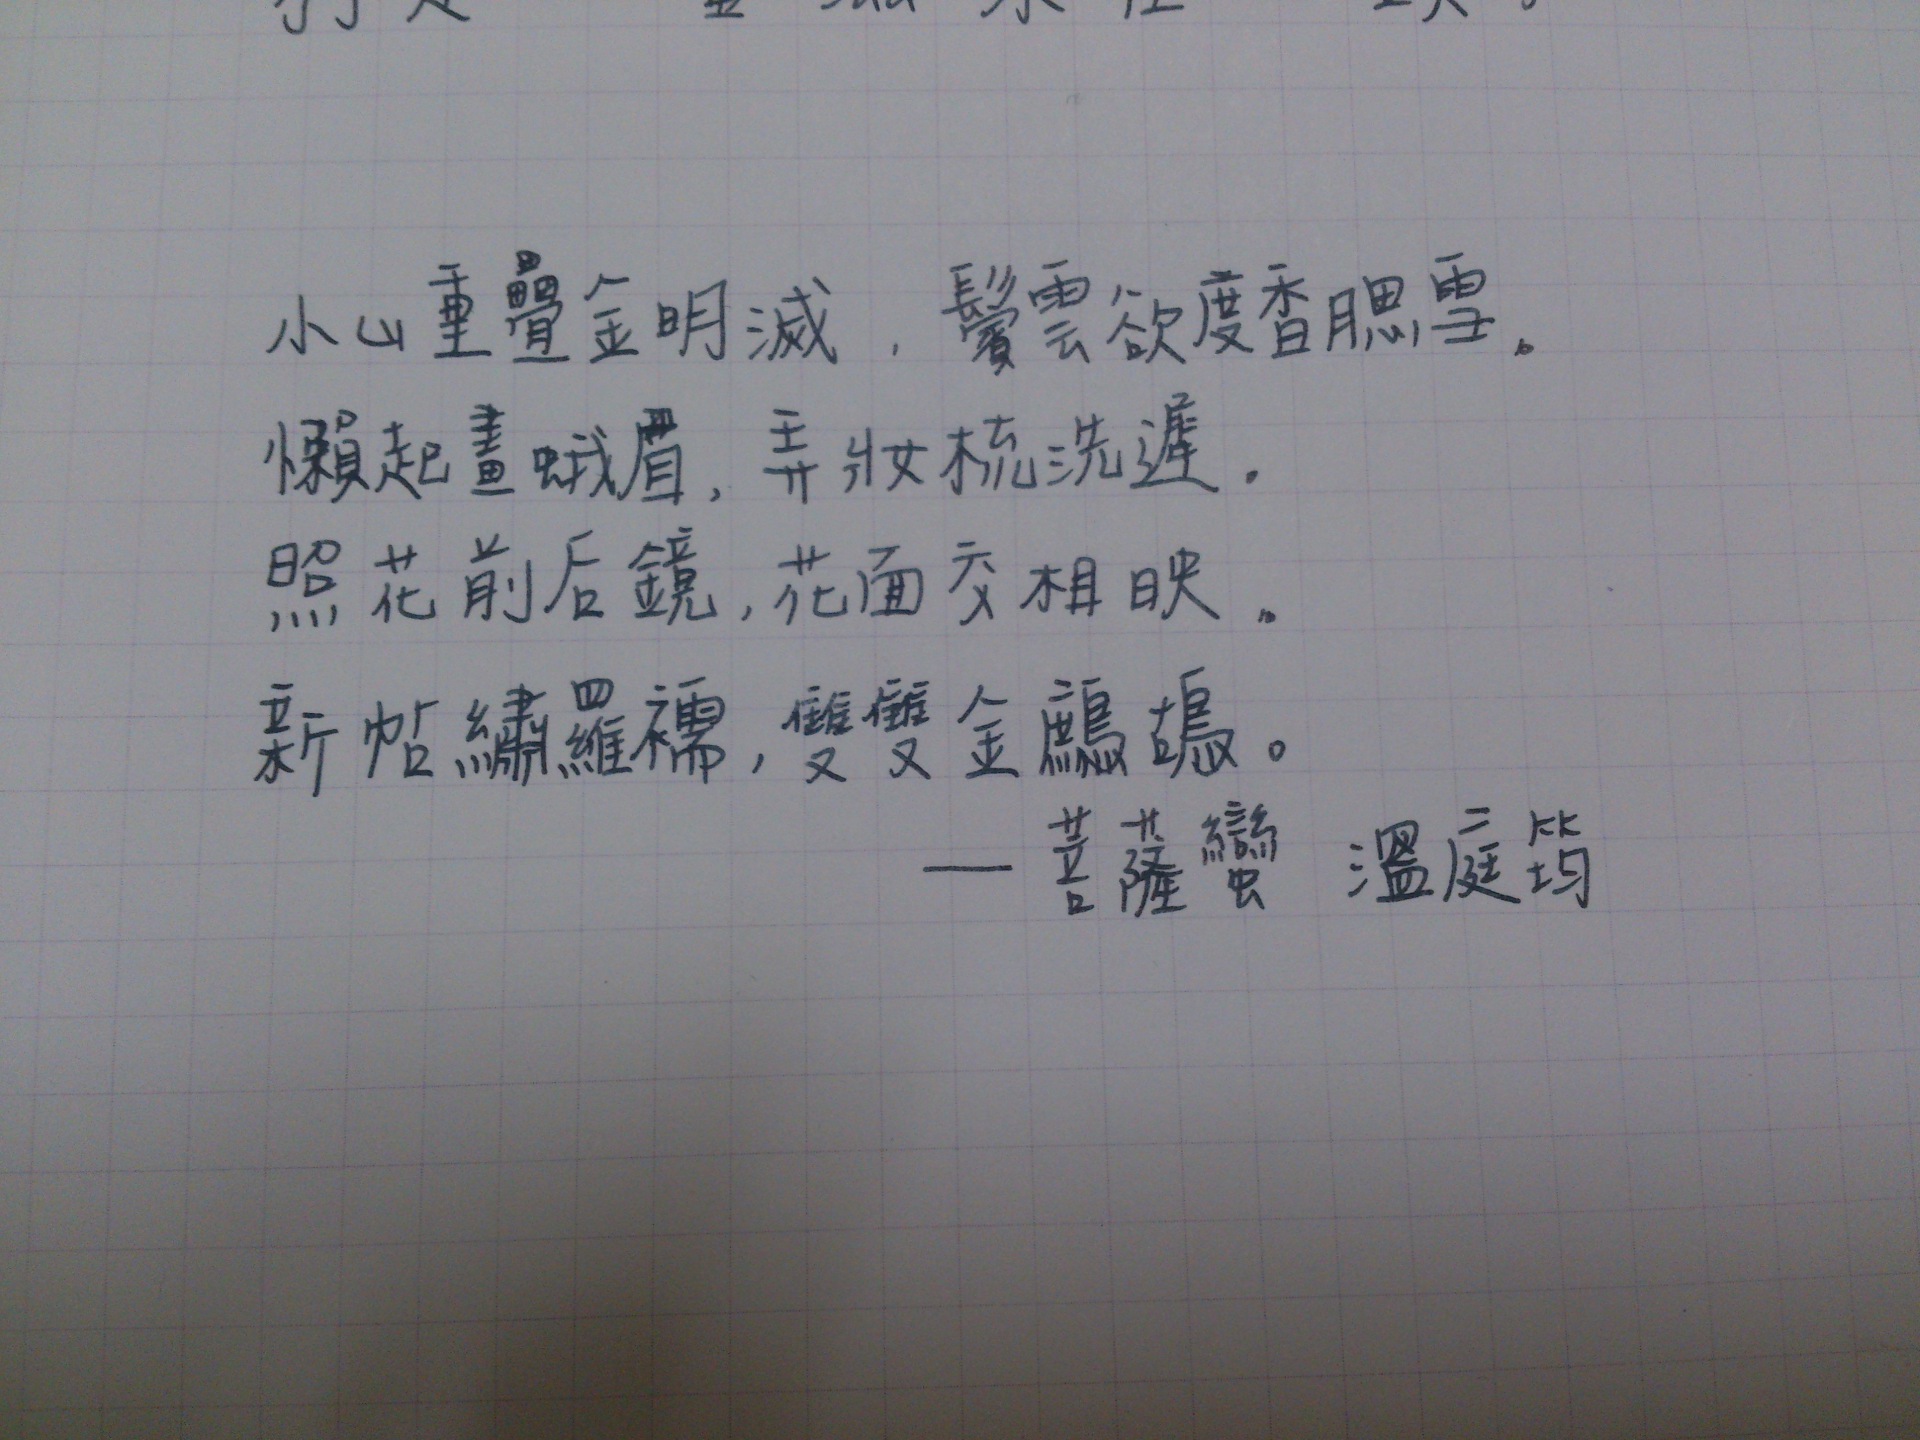 小山重疊金明滅，鬢雲欲度香腮雪。
懶起畫蛾眉，弄妝梳洗遲。
照花前后鏡，花面交相映。
新帖繡羅襦，雙雙金鷓鴣。
—菩薩蠻 溫庭筠